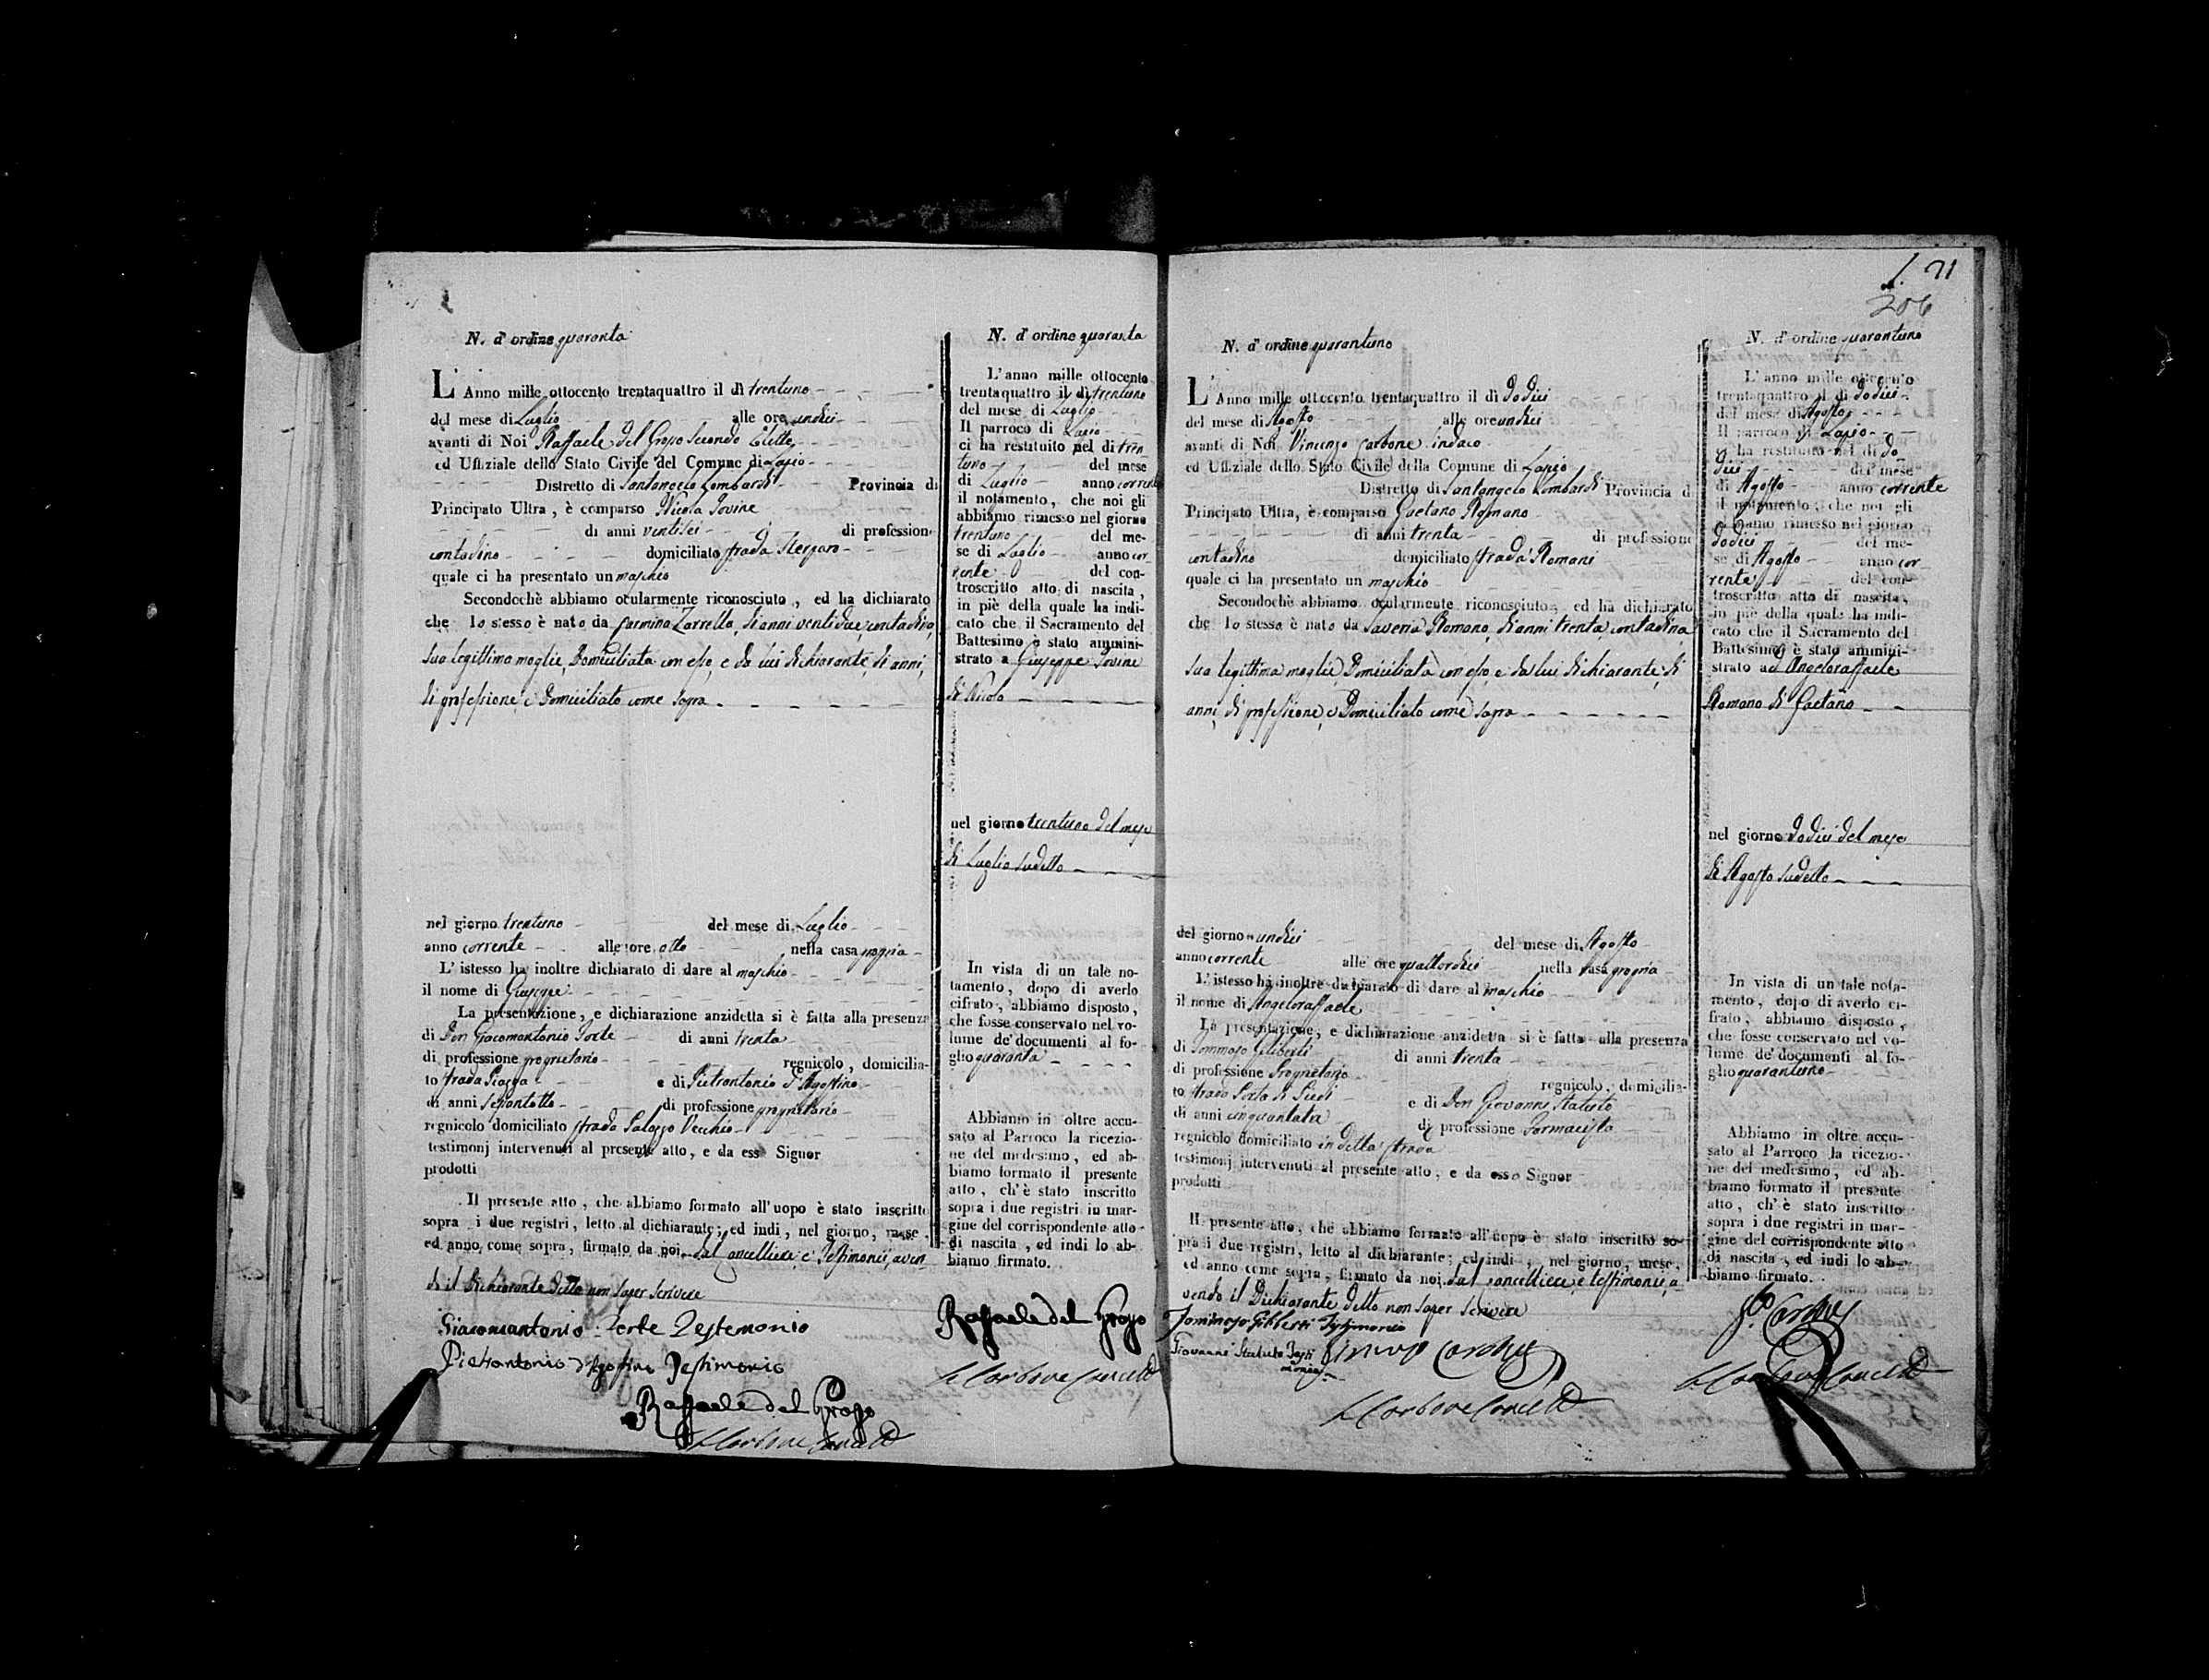 N. d'ordine quaranta
L'Anno mille ottocento trentaquattro il dì trentuno
del mese di Luglio alle ore undici
avanti di Noi Raffaele del Grosso Secondo Eletto
ed Uffiziale dello Stato Civile del Comune di Lapio
Distretto di Santangelo Lombardi Provincia di
Principato Ultra, è comparso Nicola Iovine
di anni ventisei di profession
contadino domiciliato strada
quale ci ha presentato un maschio
Secondochè abbiamo ocularmente riconosciuto, ed ha dichiarato
che lo stesso è nato da Carmina Zarrella, di anni ventidue, contadina,
sua legittima moglie, Domiciliata con esso, e da lui dichiarante, di anni,
di professione, e Domiciliato come sopra
nel giorno trentuno del mese di Luglio
anno corrente alle ore otto nella casa propria
L'istesso ha inoltre dichiarato di dare al maschio
il nome di Giuseppe
La presentazione, e dichiarazione anzidetta si è fatta alla presenza
di Don Giacomantonio Forte di anni trenta
di professione proprietario regnicolo, domicilia-
to strada Piazza e di Pietrantonio d'Agostino
di anni sessantotto di professione proprietario
regnicolo domiciliato strada Palazzo Vecchio
testimonj intervenuti al presente atto, e da esso Signor
prodotti
Il presente atto, che abbiamo formato all'uopo è stato inscritto
sopra i due registri, letto al dichiarante; ed indi, nel giorno, mese
ed anno, come sopra, firmato da noi, dal Cancelliere, e Testimonii, aven
do il Dichiarante detto non saper scrivere
Giacomantonio Forte Testemonio
Pietrantonio d'Agostino Testimonio
Raffaele del Grosso
Carbone Cancell.
N. d'ordine quaranta
L'anno mille ottocento
trentaquattro il dì trentuno
del mese di Luglio
Il parroco di Lapio
ci ha restituito nel dì tren
tuno del mese
di Luglio anno corrente
il notamento, che noi gli
abbiamo rimesso nel giorno
trentuno del me-
se di Luglio anno cor
rente del con-
troscritto atto di nascita,
in piè della quale ha indi-
cato che il Sacramento del
Battesimo è stato ammini-
strato a Giuseppe Iovine
di Nicola
nel giorno trentuno del mese
di Luglio sudetto
In vista di un tale no-
tamento, dopo di averlo
cifrato, abbiamo disposto,
che fosse conservato nel vo-
lume de' documenti al fo-
glio quaranta
Abbiamo in oltre accu-
sato al Parroco la ricezio-
ne del medesimo, ed ab-
biamo formato il presente
atto, ch'è stato inscritto
sopra i due registri in mar-
gine del corrispondente atto
di nascita, ed indi lo ab-
biamo firmato.
Raffaele del Grosso
Carbone Cancell.
71
206
N. d'ordine quarantuno
L'Anno mille ottocento trentaquattro il dì dodici
del mese di Agosto alle ore undici
avanti di Noi Vincenzo Carbone Sindaco
ed Uffiziale dello Stato Civile della Comune di Lapio
Distretto di Santangelo Lombardi Provincia d
Principato Ultra, è comparso Gaetano Romano
di anni trenta di professione
contadino domiciliato strada Romani
quale ci ha presentato un maschio
Secondochè abbiamo ocularmente riconosciuto, ed ha dichiarato
che lo stesso è nato da Saveria Romano, di anni trenta, contadina
sua legittima moglie, Domiciliata con esso, e da lui dichiarante, di
anni, di professione, e Domiciliato come sopra
del giorno undici del mese di Agosto
anno corrente alle ore quattordici nella casa propria
L'istesso ha inoltre dichiarato di dare al maschio
il nome di Angeloraffaele
La presentazione, e dichiarazione anzidetta si è fatta alla presenza
di Tommaso Giliberti di anni trenta
di professione Proprietario regnicolo, domicilia-
to strada Porta di Piedi e di Don Giovanni Statuto
di anni cinquanta di professione Farmacista
regnicolo domiciliato in detta strada
testimonj intervenuti al presente atto, e da esso Signor
prodotti
Il presente atto, che abbiamo formato all'uopo è stato inscritto so-
pra i due registri, letto al dichiarante; ed indi, nel giorno, mese,
ed anno come sopra, firmato da noi, dal Cancelliere, e testimonii, a
vendo il Dichiarante detto non saper scrivere
Tommaso Giliberti Testimonio
Giovanni Statuto Testi
monio
Vincenzo Carbone
Carbone Cancell.
N. d'ordine quarantuno
L'anno mille ottocento
trentaquattro il dì dodici
del mese di Agosto
Il parroco di Lapio
ci ha restituito nel dì do
dici del mese
di Agosto anno corrente
il notamento, che noi gli
abbiamo rimesso nel giorno
dodici del me-
se di Agosto anno cor
rente del con-
troscritto atto di nascita,
in piè della quale ha indi-
cato che il Sacramento del
Battesimo è stato ammini-
strato ad Angeloraffaele
Romano di Gaetano
nel giorno dodici del mese
di Agosto sudetto
In vista di un tale nota-
mento, dopo di averlo ci-
frato, abbiamo disposto,
che fosse conservato nel vo-
lume de' documenti al fo-
glio quarantuno
Abbiamo in oltre accu-
sato al Parroco la ricezio-
ne del medesimo, ed ab-
biamo formato il presente
atto, ch'è stato inscritto
sopra i due registri in mar-
gine del corrispondente atto
di nascita, ed indi lo ab-
biamo firmato.
Carbone
Carbone Cancell.